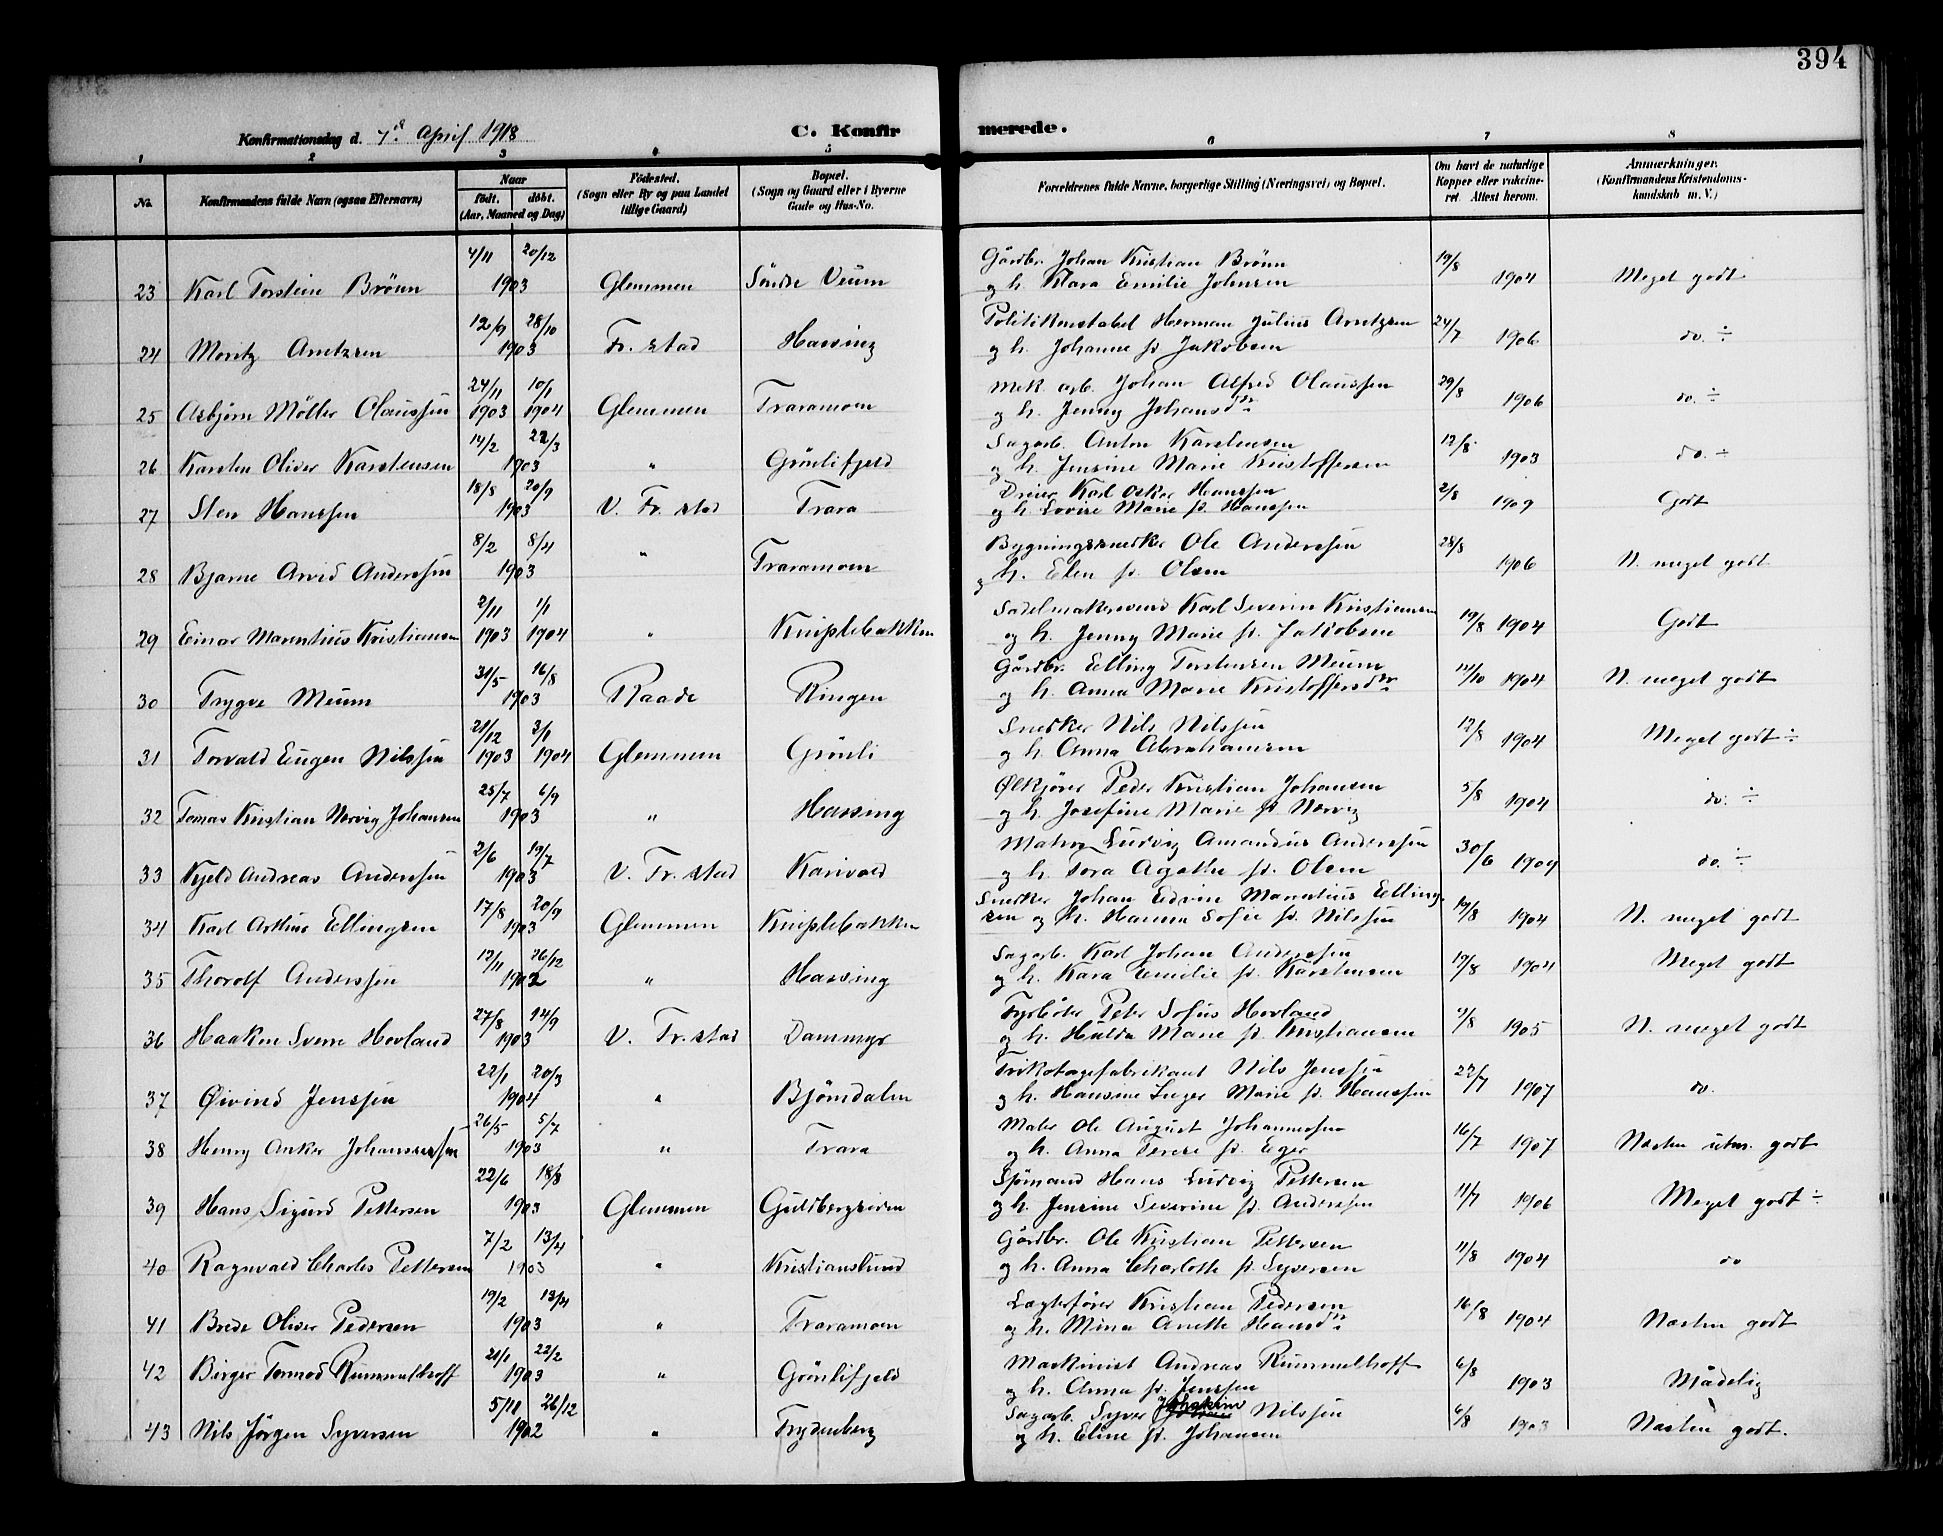 394
Konfirmationsdag d. 7de April 1918
C. Konfirmerede.
1 2 3 4 5 6 7 8
No. Konfirmandens fulde Navn (ogsaa Efternavn) Naar født. døbt. (Aar, Maaned og Dag) Fødested. (Sogn eller By og paa Landet tillige Gaard) Bopæl. (Sogn og Gaard eller i Byerne Gade og Hus-No. Forældrenes fulde Navne, borgerlige Stilling (Næringsvei) og Bopæl. Om havt de naturlige Kopper eller vakcineret Attest herom. Anmærkninger. (Konfirmandens Kristendomskundskab m. V.)
4/11 20/12 Gårdbr. Johan Kristian Brönn 19/8
23 Karl Torstein Brönn 1903 Glemmen Söndre Veum og h. Klara Emilie Johnsen 1904 Meget godt
12/9 28/10 Politikonstabel Herman Julius Arntzen 24/7
24 Moritz Arntzen 1903 Fr. stad Hassing og h. Johanne f. Jakobsen 1906 do. ÷
24/11 10/1 Mek. arb. Johan Alfred Olaussen 29/8
25 Asbjörn Möller Olaussen 1903 1904 Glemmen Traramoen og h. Jenny Johansdtr 1906 do. ÷
14/2 22/3 Sagarb. Anton Karstensen 12/8
26 Karsten Oliver Karstensen 1903 " Grönlifjeld og h. Jensine Marie Kristoffersen 1903 do. ÷
18/8 20/9 Dreier Karl Oskar Hanssen 2/8
27 Sten Hanssen 1903 V. Fr. stad Trara og h. Lovise Marie f. Hanssen 1909 Godt
8/2 8/4 Bygningssnedker Ole Anderssen 28/8
28 Bjarne Arvid Anderssen 1903 " Traramoen og h. Elen f. Olsen 1906 N. meget godt
2/11 1/1 Sadelmakersvend Karl Severin Kristiansen
29 Einar Marentius Kristiansen 1903 1904 " Kniplebakken og h. Jenny Marie f. Jakobsen 19/8 1904 Godt
31/5 16/8 Gårdbr. Elling Torstensen Meum
30 Trygve Meum 1903 Raade Ringen og h. Anna Marie Kristoffersdtr 1904 N. meget godt
21/12 3/1 Snedker Nils Nilssen 12/8
31 Torvald Eugen Nilssen 1903 1904 Glemmen Grönli og h. Anna Abrahamsen 1904 Meget godt ÷
25/7 6/9 Ølkjörer Peder Kristian Johansen 5/8
32 Tomas Kristian Norvig Johansen 1903 " Hassing og h. Josefine Marie f. Norvig 1904 do. ÷
2/6 19/7 Matros Ludvig Amandus Anderssen 30/6
33 Kjeld Andreas Anderssen 1903 V. Fr. stad Karivold og h. Tora Agathe f. Olsen 1904 do. ÷
17/8 20/9 Snedker Johan Edvin Marentius Elling-
34 Karl Arthur Ellingsen 1903 Glemmen Kniplebakken sen og h. Hanna Sofie f. Nilssen 19/8 1904 N. meget godt
12/11 26/12 Sagarb. Karl Johan Anderssen
35 Thorolf Anderssen 1902 " Hassing og h. Kara Emilie f. Karstensen 19/8 1904 Meget godt
27/8 14/9 Fyrböter Peter Sofus Hovland
36 Haakon Sverre Hovland 1903 V. Fr. stad Dammyr og h. Hulda Marie f. Kristiansen 1905 N. meget godt
22/1 20/3 Trikotagefabrikant Nils Jenssen
37 Øivind Jenssen 1904 " Björndalen og h. Hansine Inger Marie f. Hanssen 22/7 1907 do.
26/5 5/7 Maler Ole August Johannessen 16/7
38 Henry Anker Johannessen 1903 " Trara og h. Anna Terese f. Eger 1907 Næsten utm. godt
22/6 18/8 Sjömand Hans Ludvig Pettersen 11/7
39 Hans Sigurd Pettersen 1903 Glemmen Guldbergsiden og h. Jensine Severine f. Anderssen 1906 Meget godt ÷
7/2 13/4 Gårdbr. Ole Kristian Pettersen 11/8
40 Ragnvald Charles Pettersen 1903 " Kristianslund og h. Anna Charlotte f. Syversen 1904 do
19/2 13/4 Lægterförer Kristian Pedersen 16/8
41 Brede Oliver Pedersen 1903 " Traramoen og h. Mina Anette Hansdtr 1904 Næsten godt
21/1 22/2 Maskinist Andreas Rummelhoff 6/8
42 Birger Tormod Rummelhoff 1903 " Grönlifjeld og h. Anna f. Jenssen 1903 Mådelig
5/11 26/12 Sagarb. Syver Johakim Nilssen 6/8
43 Nils Jörgen Syversen 1902 " Trydenberg og h. Eline f. Johansen 1903 Næsten godt.